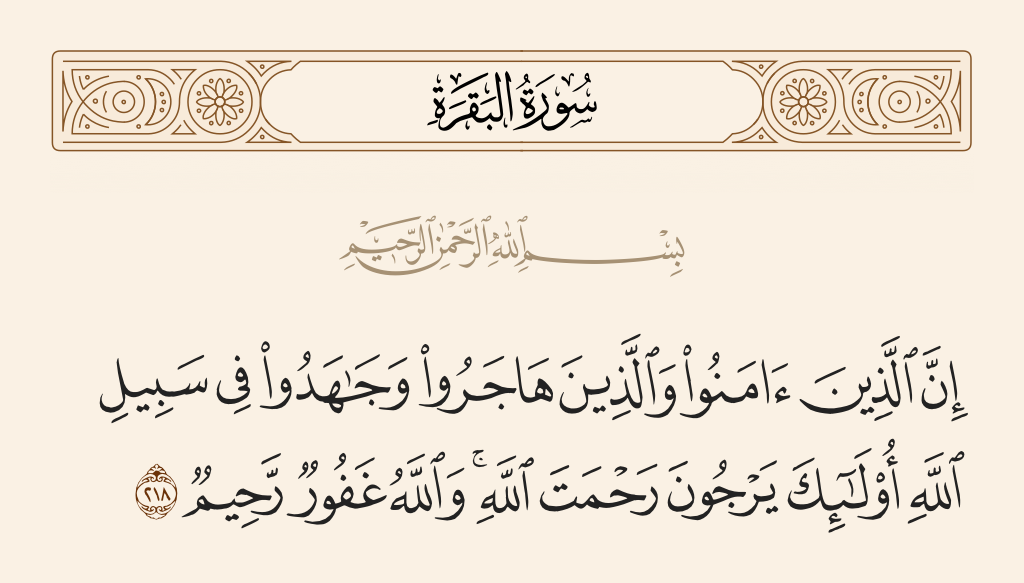 سُورَةُ الْبَقَرَةِ
بِسْمِ ٱللَّهِ ٱلرَّحْمَٰنِ ٱلرَّحِيمِ
إِنَّ ٱلَّذِينَ ءَامَنُوا۟ وَٱلَّذِينَ هَاجَرُوا۟ وَجَـٰهَدُوا۟ فِى سَبِيلِ
ٱللَّهِ أُو۟لَـٰٓئِكَ يَرْجُونَ رَحْمَتَ ٱللَّهِ ۚ وَٱللَّهُ غَفُورٌ رَّحِيمٌ ٢١٨